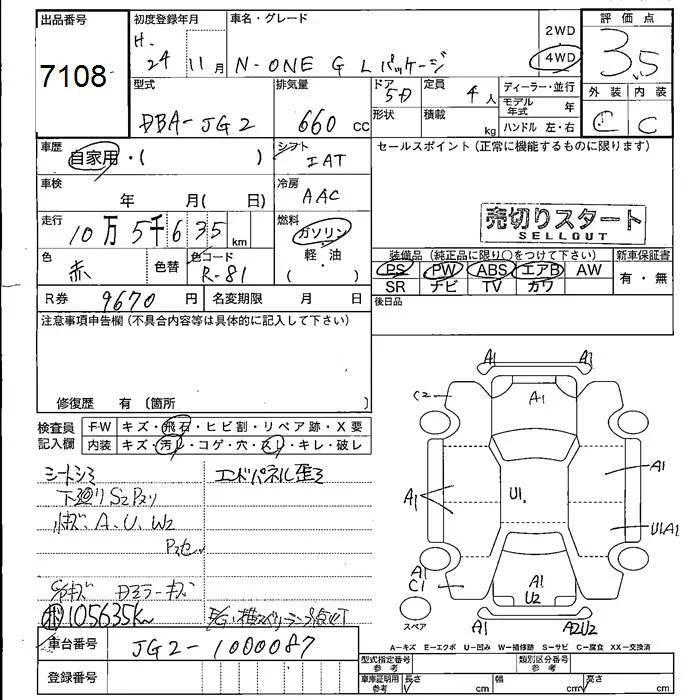 出品番号
7108
初度登録年月
H. 24 11月
車名・グレード
N-ONE G Lパッケージ
2WD
4WD
評価点
3.5
外装 内装
C C
型式
DBA-JG2
排気量
660 cc
ドア
5D
定員
4人
形状
積載
kg
ディーラー・並行
モデル年式 年
ハンドル 左・右
車歴
自家用・( )
シフト
IAT
セールスポイント (正常に機能するものに限ります)
車検
年 月( 日)
冷房
AAC
走行
10万5千635 km
燃料
ガソリン
軽・油
( )
売切りスタート
SELLOUT
色
赤
色替
色コード
R-81
装備品 (純正品に限り○をつけて下さい)
PS PW ABS エアB AW
SR ナビ TV カワ
新車保証書
有・無
R券 9670円
名変期限 月 日
後日品
注意事項申告欄 (不具合内容等は具体的に記入して下さい)
修復歴 有 〔箇所 〕
検査員記入欄
FW キズ・飛石・ヒビ割・リペア跡・X要
内装 キズ・汚レ・コゲ・穴・スレ・キレ・破レ
シートシミ
エンドパネル歪ミ
下廻りS2Pスリ
小キズ、A、U、W2
105635km
A1 A1
C2 A1
A1
A1
U1
U1A1
A1
C1
A1
U2
A1 A2U2
スペア
A-キズ E-エクボ U-凹み W-補修跡 S-サビ C-腐食 XX-交換済
車台番号
JG2-1000087
登録番号
型式指定番号
参考
類別区分番号
参考
車庫証明用
参考
長さ cm
幅 cm
高さ cm